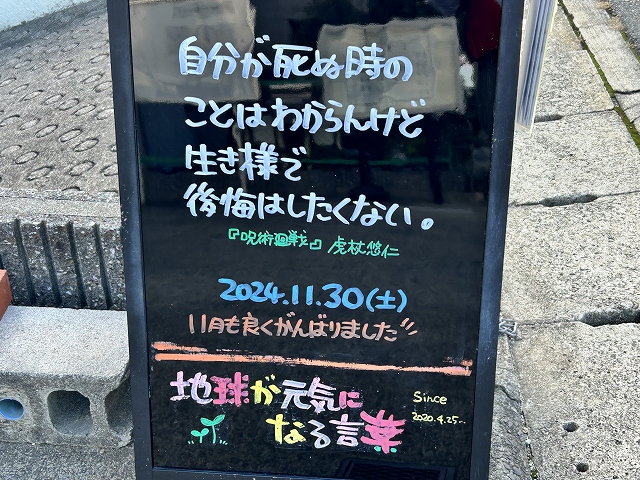 自分が死ぬ時の
ことはわからんけど
生き様で
後悔はしたくない。
『呪術廻戦』 虎杖悠仁
2024.11.30(土)
11月も良くがんばりました"
地球が元気に
なる言葉
Since
2020.4.25~